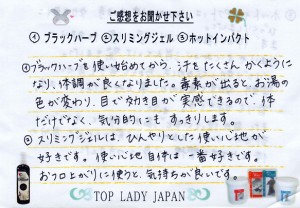 ご感想をお聞かせ下さい
① ブラックハーブ ② スリミングジェル ③ ホットインパクト
① ブラックハーブを使い始めてから、汗もたくさんかくように
なり、体調が良くなりました。毒素が出ると、お湯の
色が変わり、目で効き目が実感できるので、体
だけでなく、気分的にもすっきりします。
② スリミングジェルは、ひんやりとした使い心地が
好きです。使い心地自体は一番好きです。
お風呂上がりに使うと、気持ちが良いです。
TOP LADY JAPAN